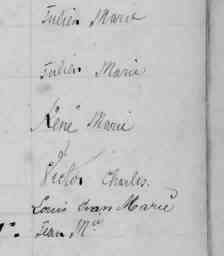 Julien Marie
Julien Marie
René Marie
Victor Charles.
Louis Marie
Jean M.ie